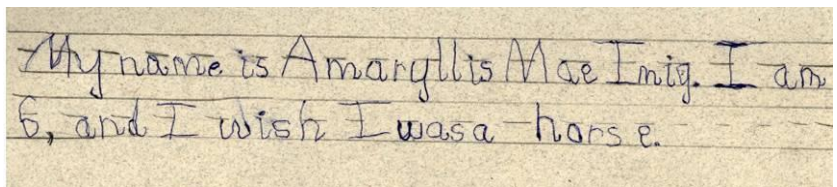 My name is Amaryllis Mae Imig. I am
6, and I wish I was a horse.